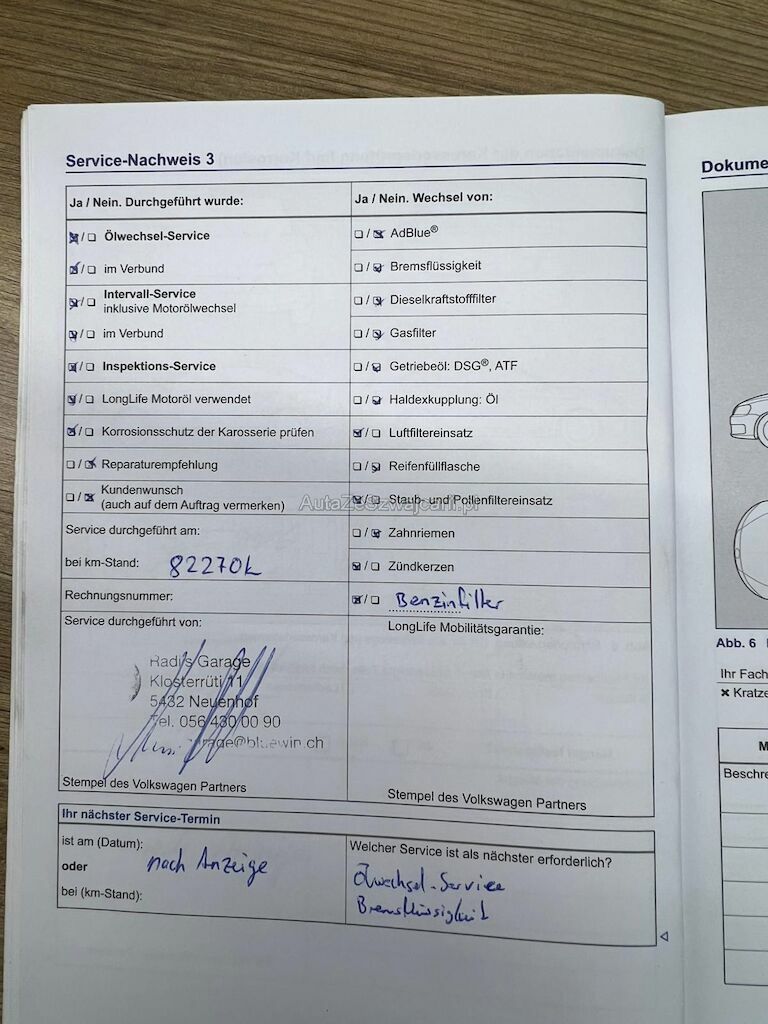 Service-Nachweis 3
Ja / Nein. Durchgeführt wurde:
Ölwechsel-Service
im Verbund
Intervall-Service
inklusive Motorölwechsel
im Verbund
Inspektions-Service
LongLife Motoröl verwendet
Korrosionsschutz der Karosserie prüfen
Reparaturempfehlung
Kundenwunsch
(auch auf dem Auftrag vermerken)
Service durchgeführt am:
bei km-Stand: 82270k
Rechnungsnummer:
Service durchgeführt von:
Radi's Garage
Klosterrüti 11
5432 Neuenhof
Tel. 056 430 00 90
garage@bluewin.ch
Stempel des Volkswagen Partners
Ja / Nein. Wechsel von:
AdBlue®
Bremsflüssigkeit
Dieselkraftstofffilter
Gasfilter
Getriebeöl: DSG®, ATF
Haldexkupplung: Öl
Luftfiltereinsatz
Reifenfüllflasche
Staub- und Pollenfiltereinsatz
Zahnriemen
Zündkerzen
Benzinfilter
LongLife Mobilitätsgarantie:
Stempel des Volkswagen Partners
AutaZeSzwajcarii.pl
Ihr nächster Service-Termin
ist am (Datum):
oder
nach Anzeige
bei (km-Stand):
Welcher Service ist als nächster erforderlich?
Ölwechsel-Service
Bremsflüssigkeit
Dokume
Abb. 6
Ihr Fach
Kratze
M
Beschre